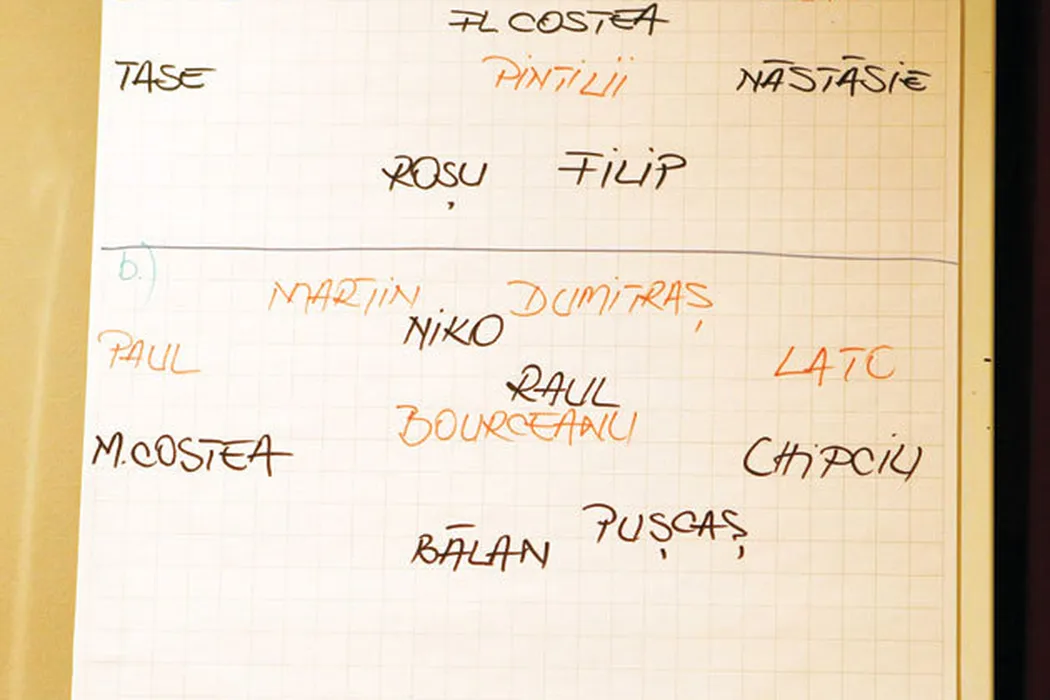 FL COSTEA
TASE PINTILII NĂSTĂSIE
ROȘU FILIP
b.)
MARTIN DUMITRAȘ
NIKO
PAUL LATO
RAUL
BOURCEANU
M.COSTEA CHIPCIU
PUȘCAȘ
BĂLAN